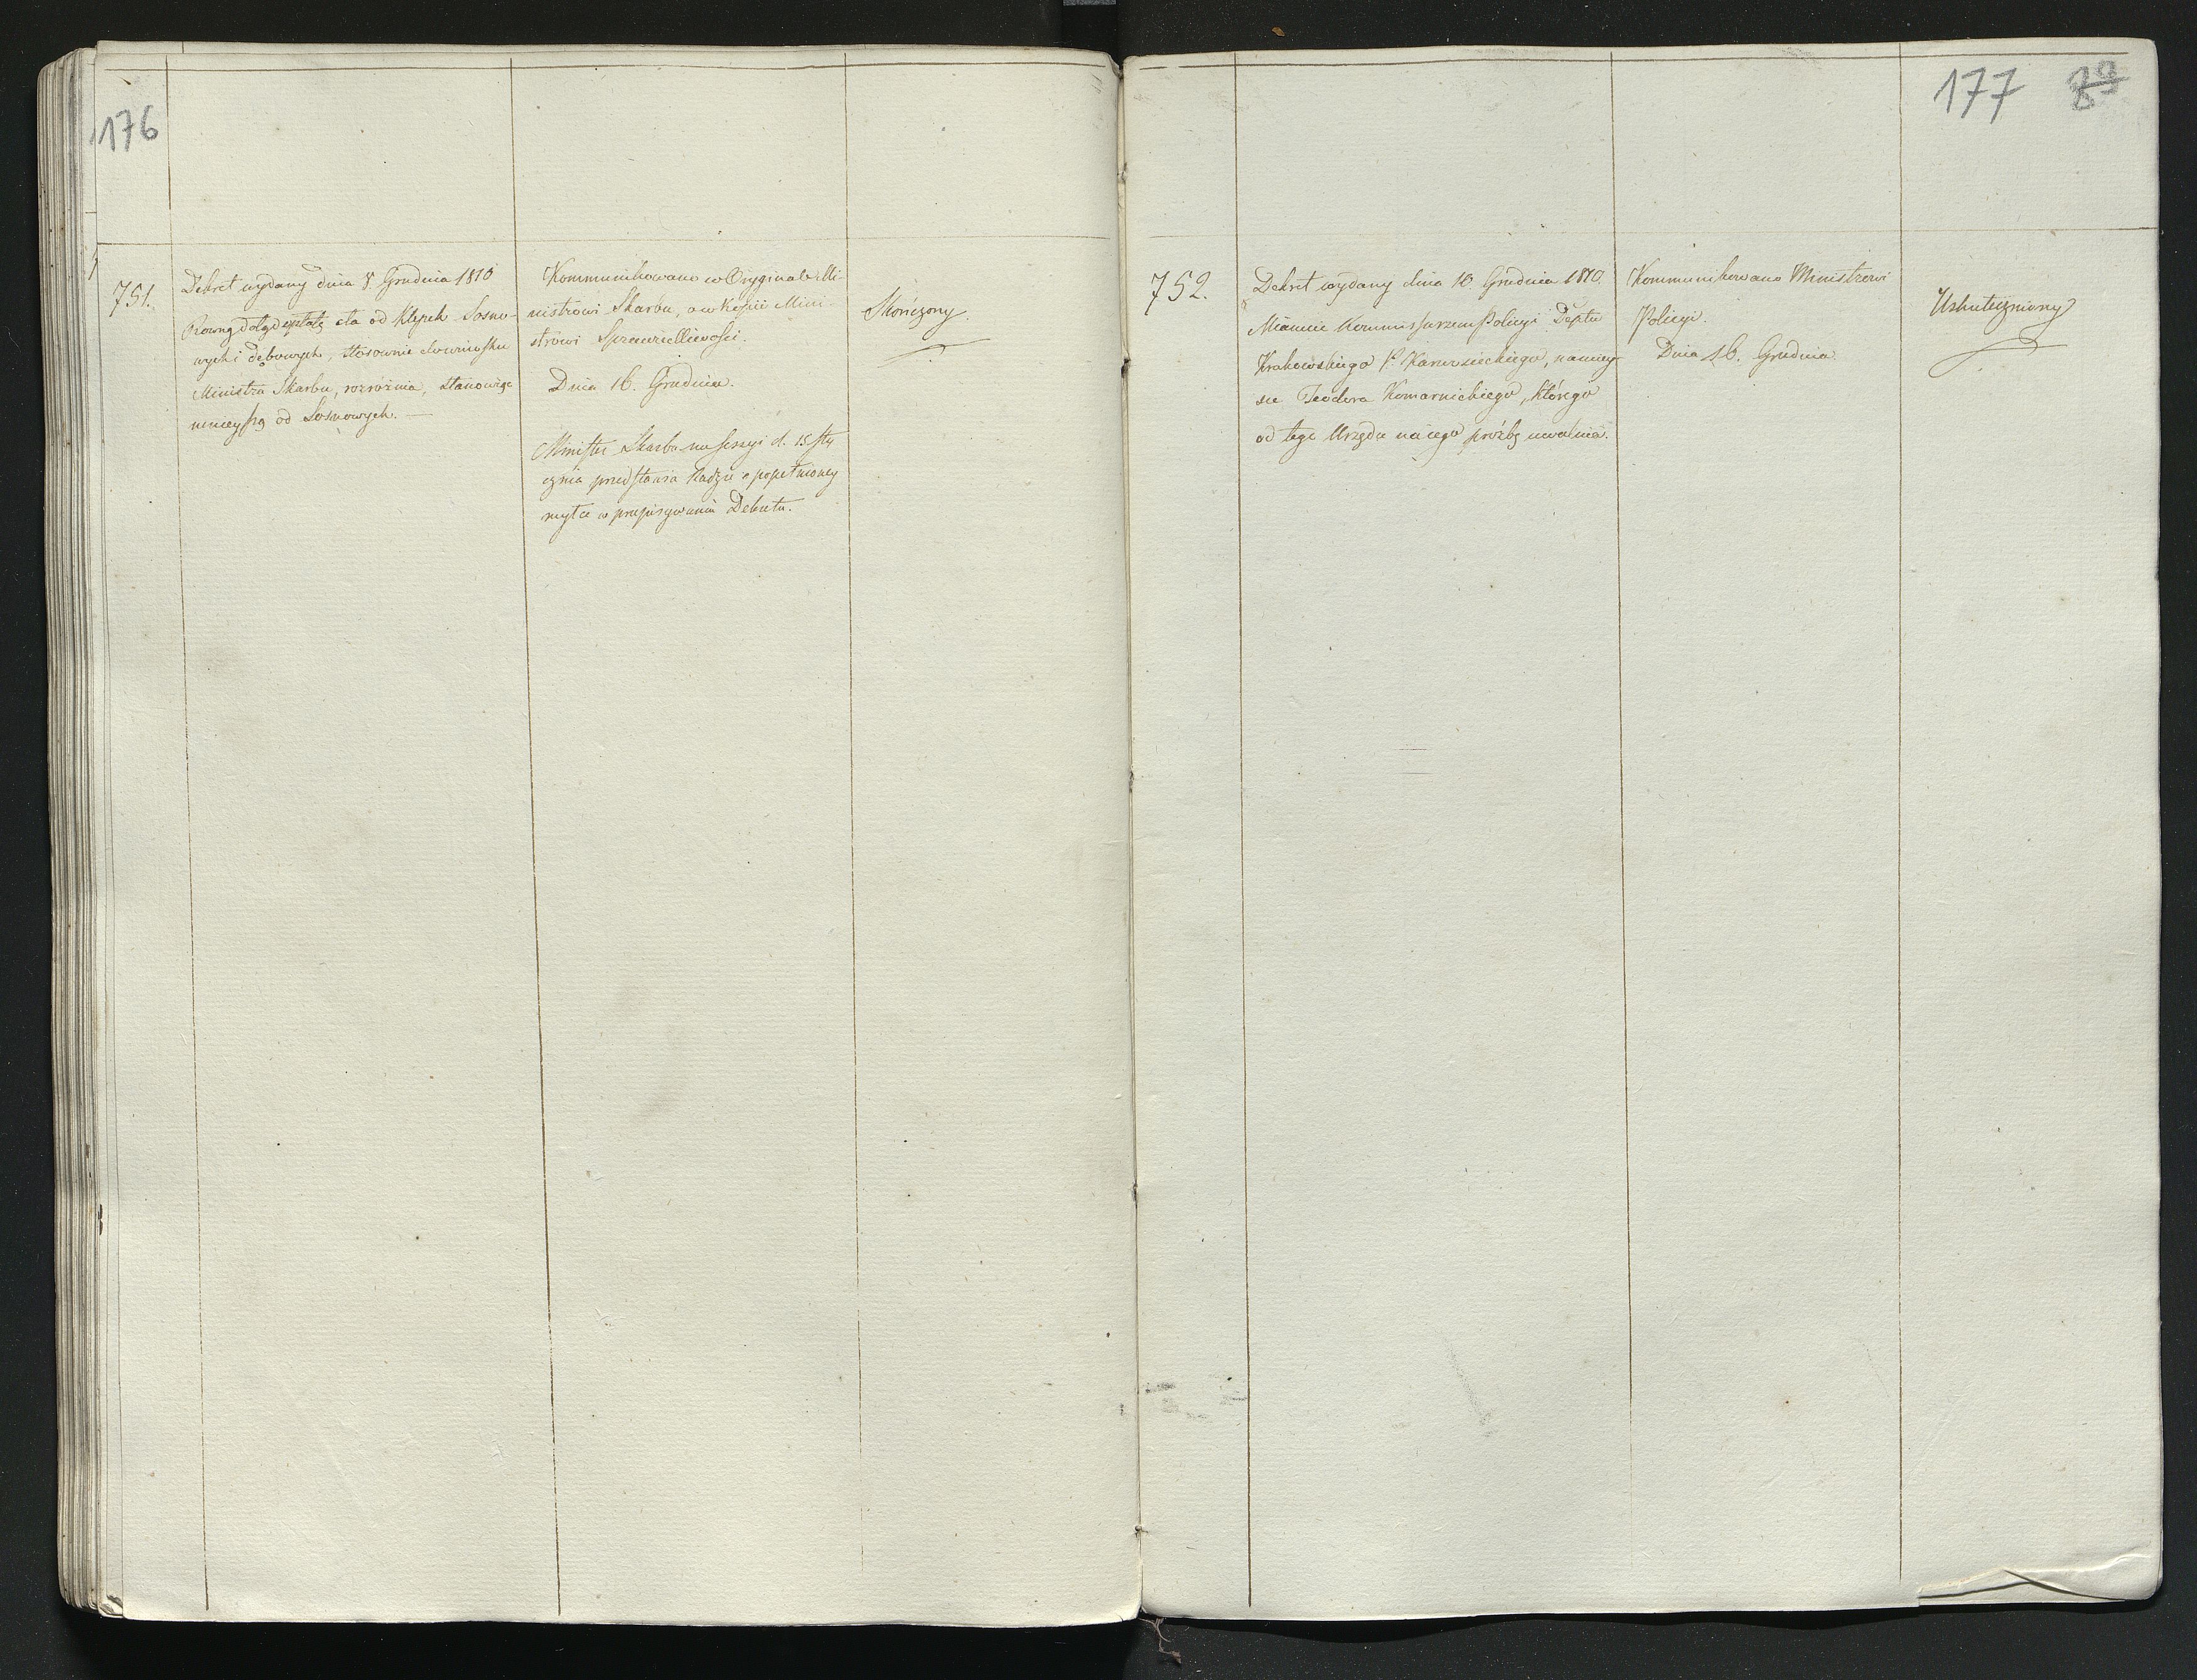 176
751.
Dekret wydany dnia 8. Grudnia 1810
Rowną dotąd opłatę cła od Klepek Sosno-
wych i dębowych, stosownie do wniosku
Ministra Skarbu, rozróżnia, stanowiąc
mnieyszą od Sosnowych. —
Kommunikowano w Oryginale Mi-
nistrowi Skarbu, a w Kopii Mini-
strowi Sprawiedliwości.
Dnia 16. Grudnia.
Minister Skarbu na Sessyi d. 15 Sty
cznia przedstawia Radzie o popełnioney
myłce w przepisywaniu Dekretu.
Skończony.
177 89
752.
Dekret wydany dnia 10. Grudnia 1810.
Mianuie Kommissarzem Policyi Deptu
Krakowskiego P. na miey-
sce Teodora Komarnickiego, którego
od tego Urzędu na iego proźbę uwalnia.
Kommunikowano Ministrowi
Policyi.
Dnia 16. Grudnia
Uskuteczniony